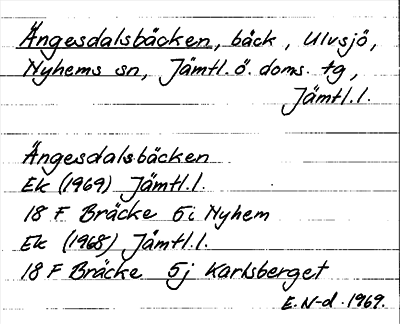 Ängesdalsbäcken, bäck, Ulvsjö,
Nyhems sn, Jämtl. ö. doms. tg,
Jämtl. l.
Ängesdalsbäcken
Ek (1969) Jämtl. l.
18 F Bräcke 5i Nyhem
Ek (1968) Jämtl. l.
18 F Bräcke 5j Karlsberget
E. N-d. 1969.